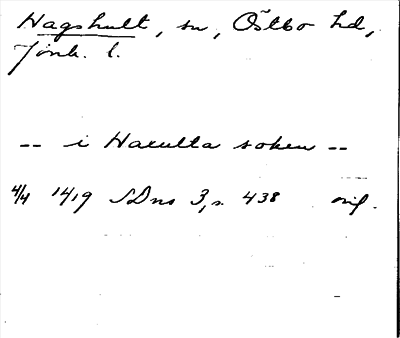 Hagshult, sn, Östbo hd,
Jönk. l.
-- i Haxulta soken --
4/4 1419 SDns 3, s. 438 orig.